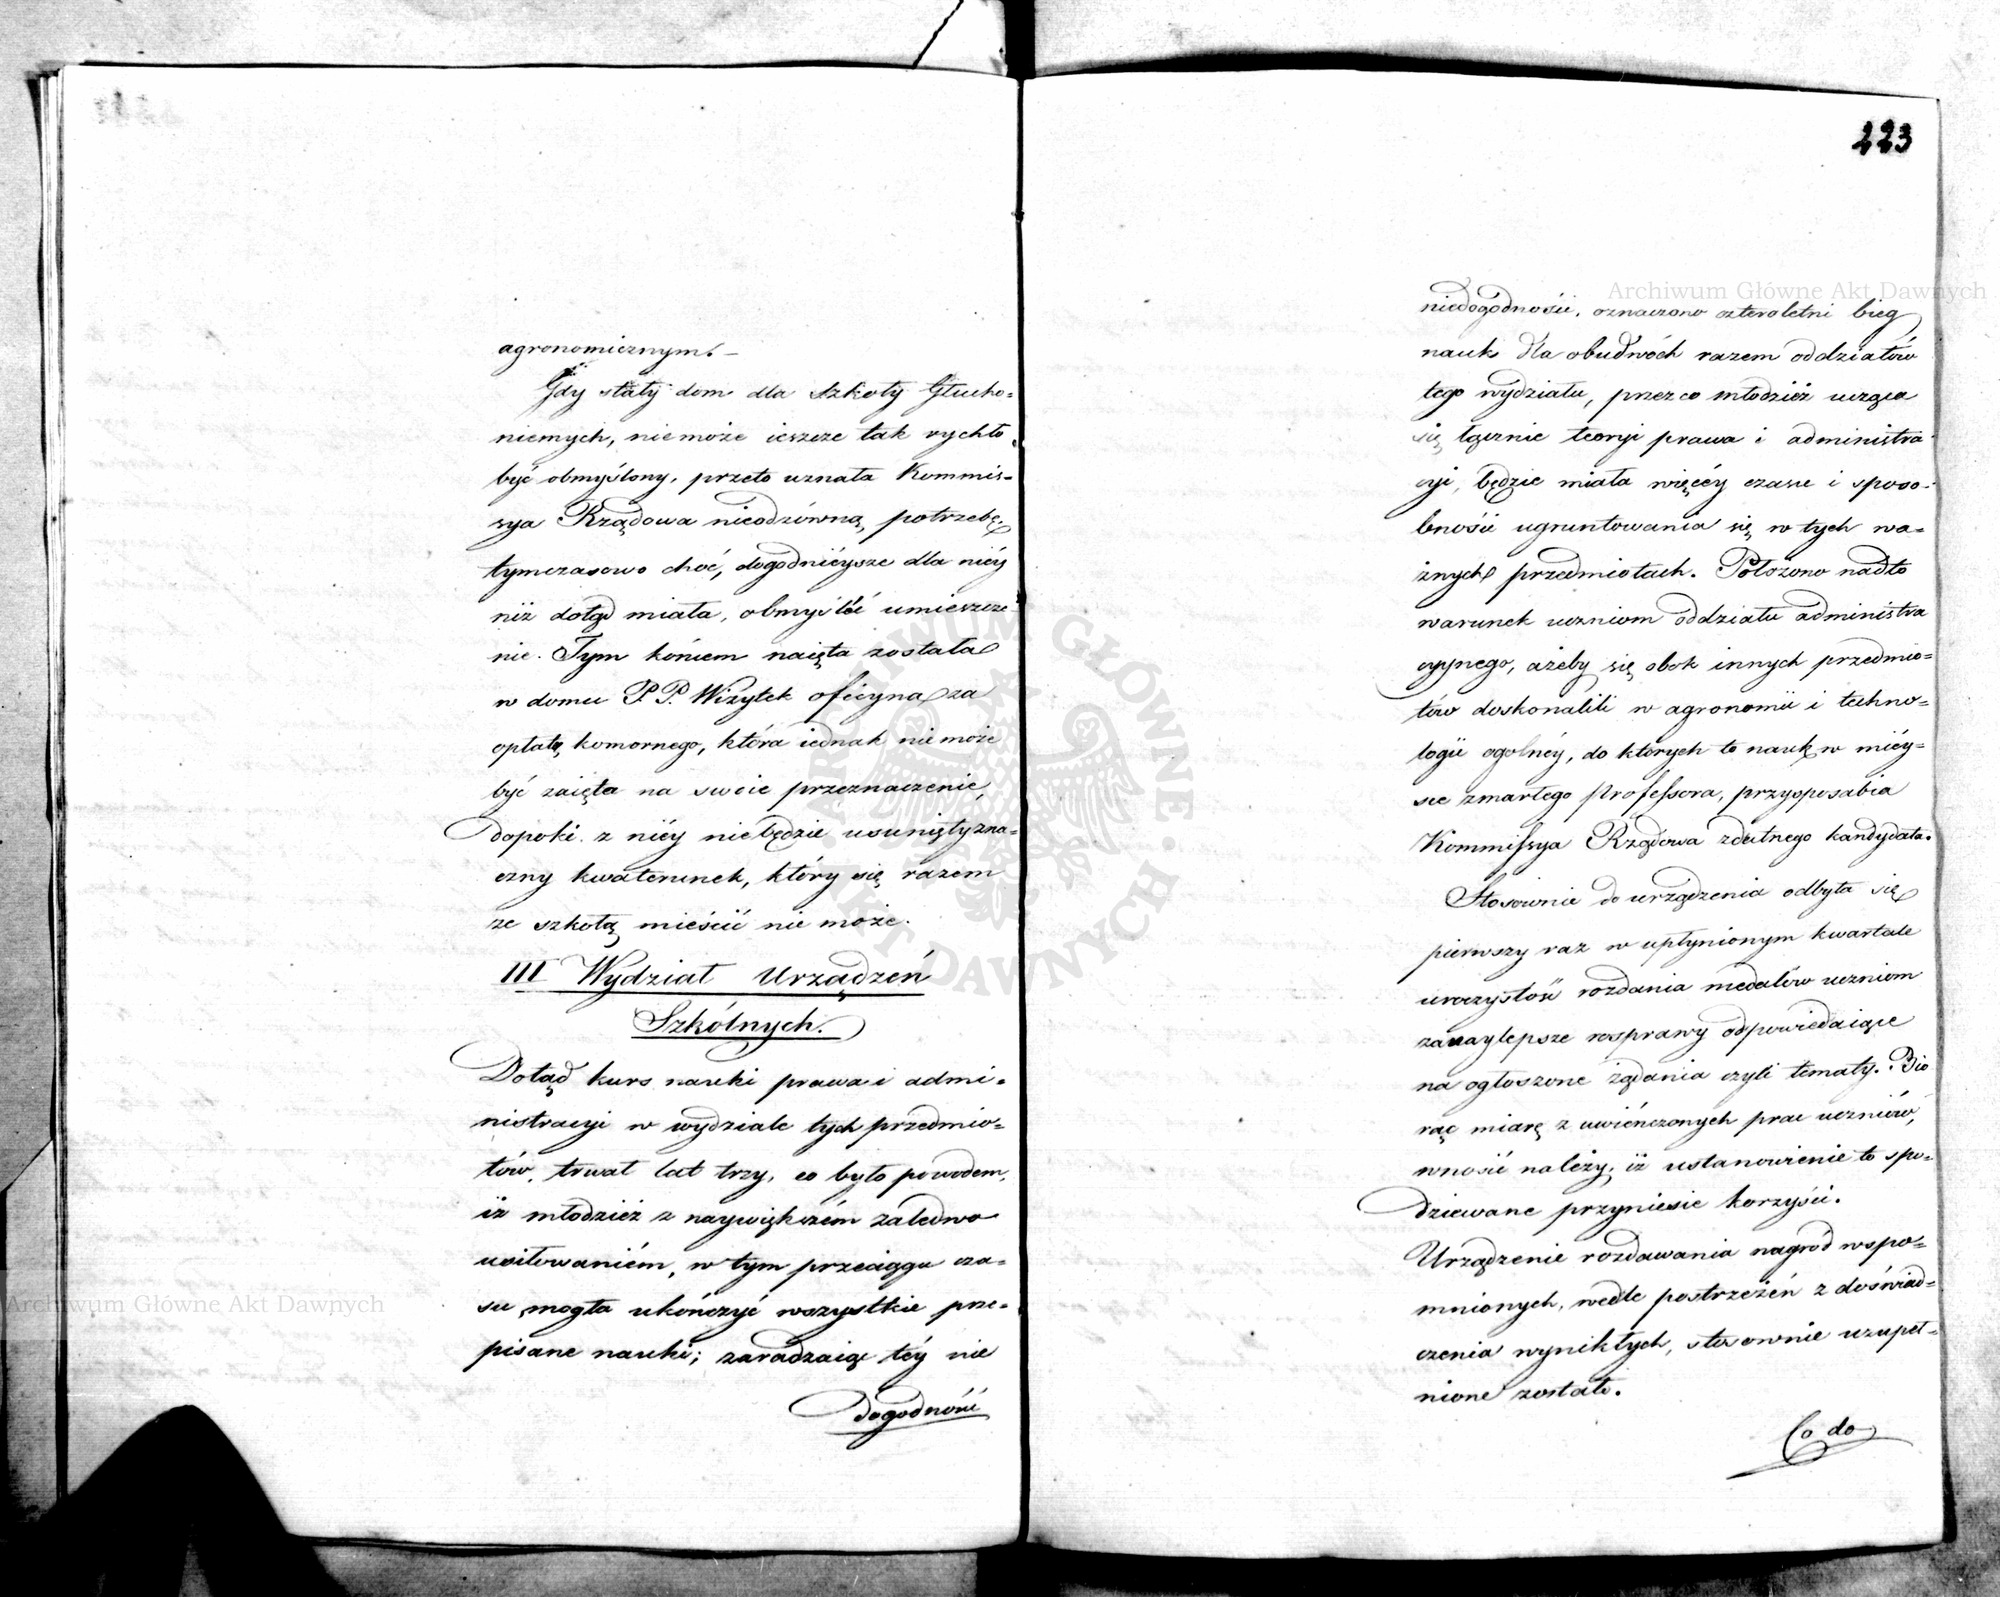 agronomicznym. –
Gdy stały dom dla Szkoły Głucho=
niemych, niemoże ieszcze tak rychło
być obmyślony, przeto uznała Kommis=
sya Rządowa nieodzówną potrzebę,
tymczasowo choć, dogodnieysze dla niéy
niż dotąd miała, obmyślić umieszcze
nie. Tym końcem naięta została
w domu P. P. Wizytek oficyna za
opłatą komornego, która iednak niemoże
być zaięta na swoie przeznaczenie,
dopóki z niéy niebędzie usunięty zna=
czny kwaterunek, który się razem
ze szkołą mieścić nie może.
III Wydział Urządzeń
Szkólnych.
Dotąd kurs nauki prawa i admi=
nistracyi w wydziale tych przedmio=
tów, trwał lat trzy, co było powodem,
iż młodzież z naywiększém zaledwo
usiłowaniém, w tym przeciągu cza=
su mogła ukończyć wszystkie prze=
pisane nauki; zaradzaiąc téy nie
dogodność
223
niedogodności, oznaczono czteroletni bieg
nauk dla obudwóch razem oddziałów
tego wydziału, przez co młodzież ucząca
się łącznie teoryi prawa i administra
cyi, będzie miała więcéy czasu i sposo=
bności ugruntowania się w tych wa=
żnych przedmiotach. Położono nadto
warunek uczniom oddziału administra
cyynego, ażeby się obok innych przedmio=
tów doskonalili w agronomii i techno=
logii ogólnéy, do których to nauk w miéy=
sce zmarłego Professora, przysposabia
Kommissya Rządowa zdatnego kandydata.
Stosownie do urządzenia odbyła się
pierwszy raz w upłynionym kwartale
uroczystość rozdania medalów uczniom
za naylepsze rosprawy odpowiedaiące
na ogłoszone żądania czyli tematy. Bio
rąc miarę z uwieńczonych prac uczniów,
wnosić należy, iż ustanowienie to spo=
dziewane przyniesie korzyści.
Urządzenie rozdawania nagród wspo=
mnionych, wedle postrzeżeń z doświad=
czenia wynikłych, stosownie uzupeł=
nione zostało.
Co do
Archiwum Główne Akt Dawnych
Archiwum Główne Akt Dawnych
ARCHIWUM GŁÓWNE · AKT DAWNYCH ·